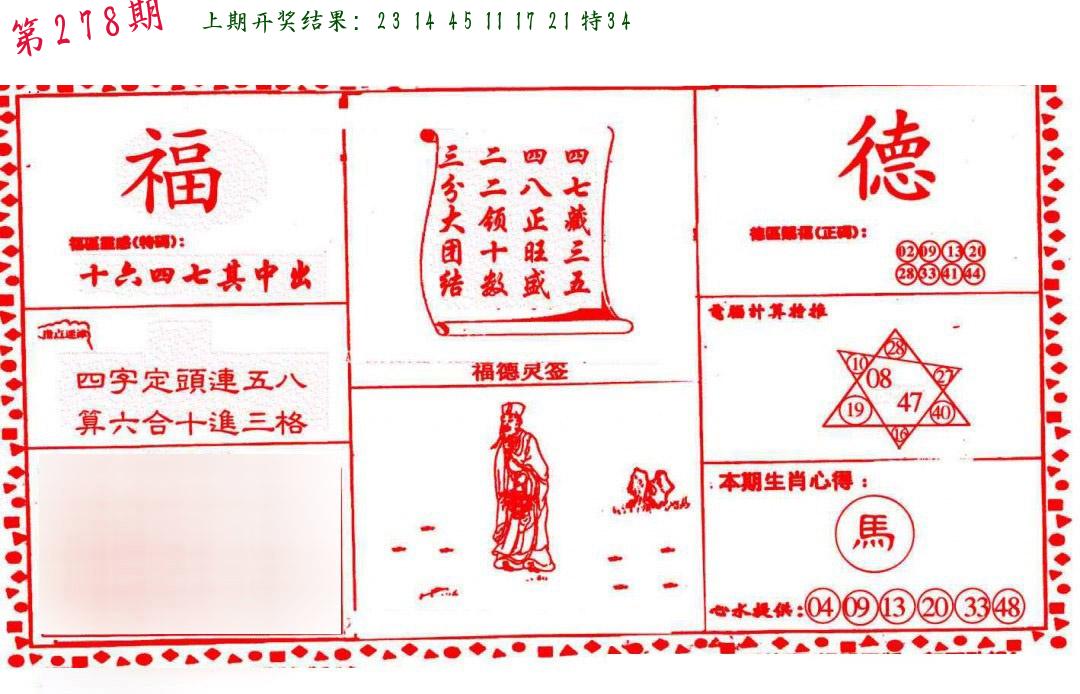 第278期
上期开奖结果：23 14 45 11 17 21 特34
福
福區靈感(特碼)：
十六四七其中出
四字定頭連五八
算六合十進三格
四七藏三五
四八正旺盛
二二领十数
三分大团结
福德灵签
德
(正碼)：
02 09 13 20
28 33 41 44
電腦計算精推
28
10
27
08
47
19
40
16
本期生肖心得：
馬
心水提供：04 09 13 20 33 48